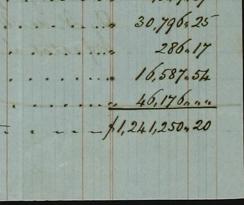 30,796„25
286„17
16,587„54
46,176„„
$1,241,250„20